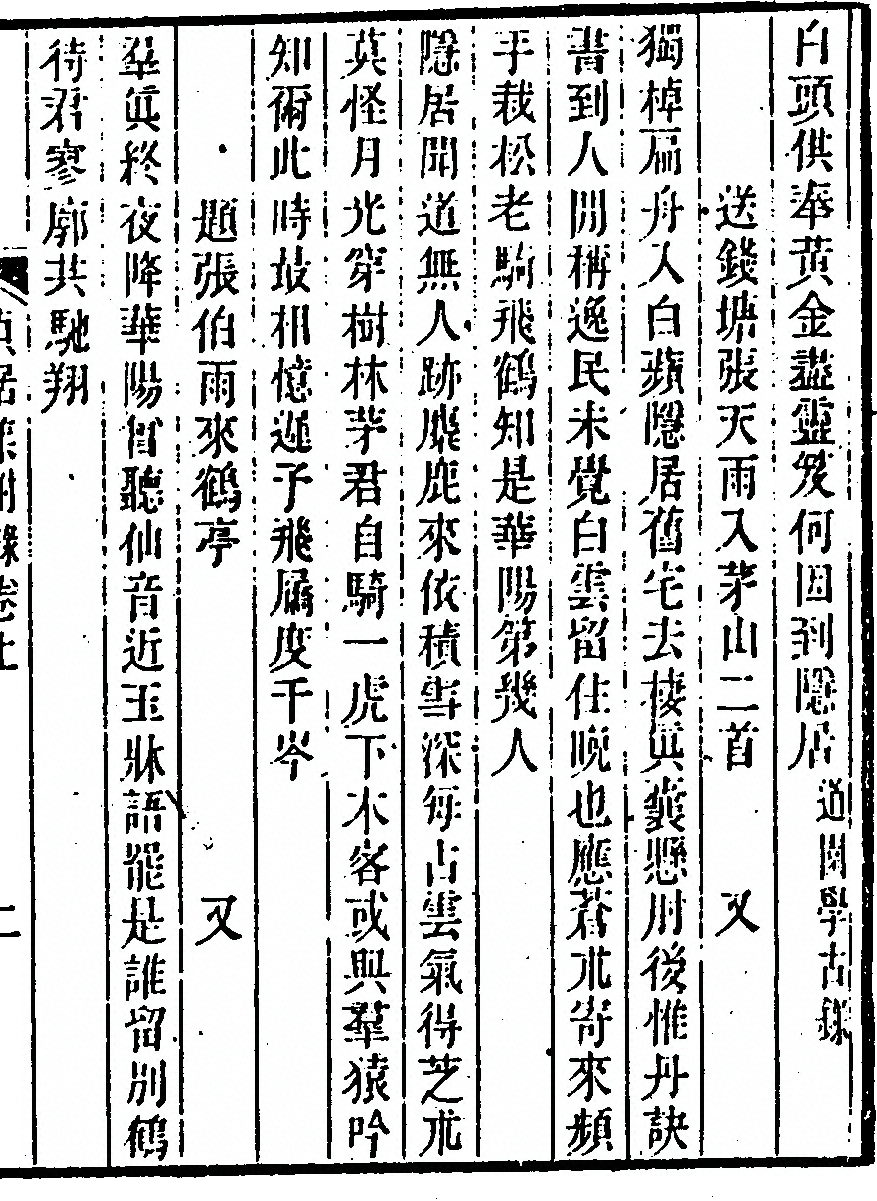 白頭供奉黃金盡靈笈何因到隱居道園學古錄
送錢塘張天雨入茅山二首 又
獨棹扁舟入白蘋隱居舊宅去棲眞囊懸肘後惟丹訣
書到人閒稱逸民未覺白雲留住晚也應蒼朮寄來頻
手栽松老駒飛鶴知是華陽第幾人
隱居聞道無人跡麋鹿來依積雪深每占雲氣得芝朮
莫怪月光穿樹林茅君自騎一虎下木客或與羣猿吟
知爾此時最相憶遲子飛屩度千岑
題張伯雨來鶴亭 又
羣眞終夜降華陽曾聽仙音近玉牀語罷是誰留別鶴
待君寥廓共馳翔
貞居集附錄卷上 二